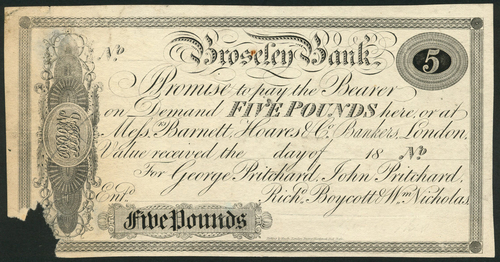 Broseley Bank.
5
No
I Promise to pay the Bearer
on Demand FIVE POUNDS here, or at
Messrs Barnett, Hoares & Co. Bankers, London.
Value received the day of 18 No
For George Pritchard, John Pritchard,
Entd. Richd. Boycott & Wm. Nicholas
Five Pounds